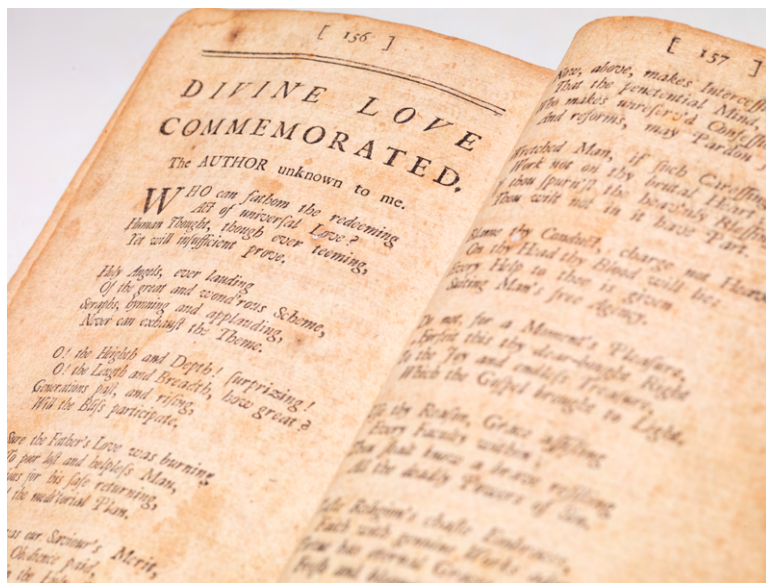 [ 156 ]
DIVINE LOVE
COMMEMORATED,
The AUTHOR unknown to me.
WHO can fathom the redeeming
Act of univerſal Love?
Human Thought, though ever teeming,
Yet will inſufficient prove.
Holy Angels, ever lauding
Of the great and wond'rous Scheme,
Seraphs, hymning and applauding,
Never can exhauſt the Theme.
O! the Heighth and Depth! ſurprizing!
O! the Length and Breadth, how great?
Generations paſt, and riſing,
Will the Bliſs participate.
Sure the Father's Love was burning
To our loſt and helpleſs Man,
for his ſafe returning,
the meditorial Plan.
our Saviour's Merit,
Obedience paid,
the
[ 157 ]
Now, above, makes Interceſſi
That the penetential Mind,
Who makes unreſerv'd Confeſſi
And reforms, may Pardon
Wretched Man, if ſuch Careſſing
Work not on thy brutal Heart
If thou ſpurn'ſt the heavenly Bleſſing
Thou wilt not in it have Part.
Blame thy Conduct, charge not Heaven
On thy Head thy Blood will be;
Every Help to thee is given
Suiting Man's free Agency.
Do not, for a Moment's Pleaſure,
Forfeit this thy dear-bought Right
To the Joy and endleſs Treaſure,
Which the Goſpel brought to Light.
To thy Reaſon, Grace aſſiſting
Every Faculty
brave reſiſting
All the deadly Powers of Sin.
chaſte Embraces,
Faith with genuine Works